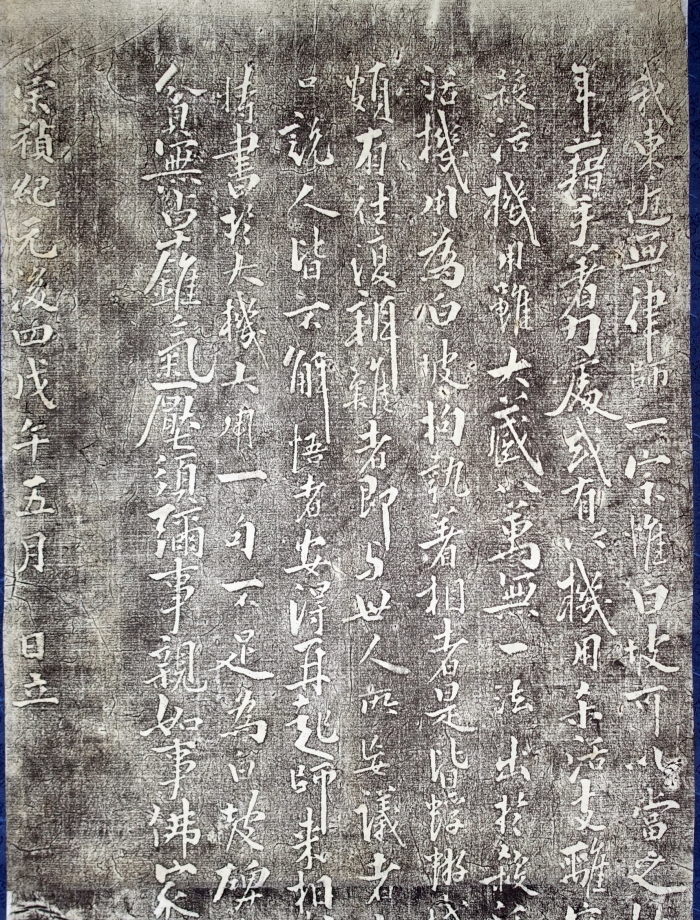 我東近無律師一宗惟白坡可以當之
年藉手著力處或有以機用殺活支離
殺活機用雖大藏八萬無一法出於殺
活機用為白坡拘執著相者是皆蜉蝣
頗有往復辨難者即与世人所妄議者
口說人皆不解悟者安得再起師來相
特書於大機大用一句不足為白坡碑
貧無卓錐氣壓須彌事親如事佛家
崇禎紀元後四戊午五月 日立